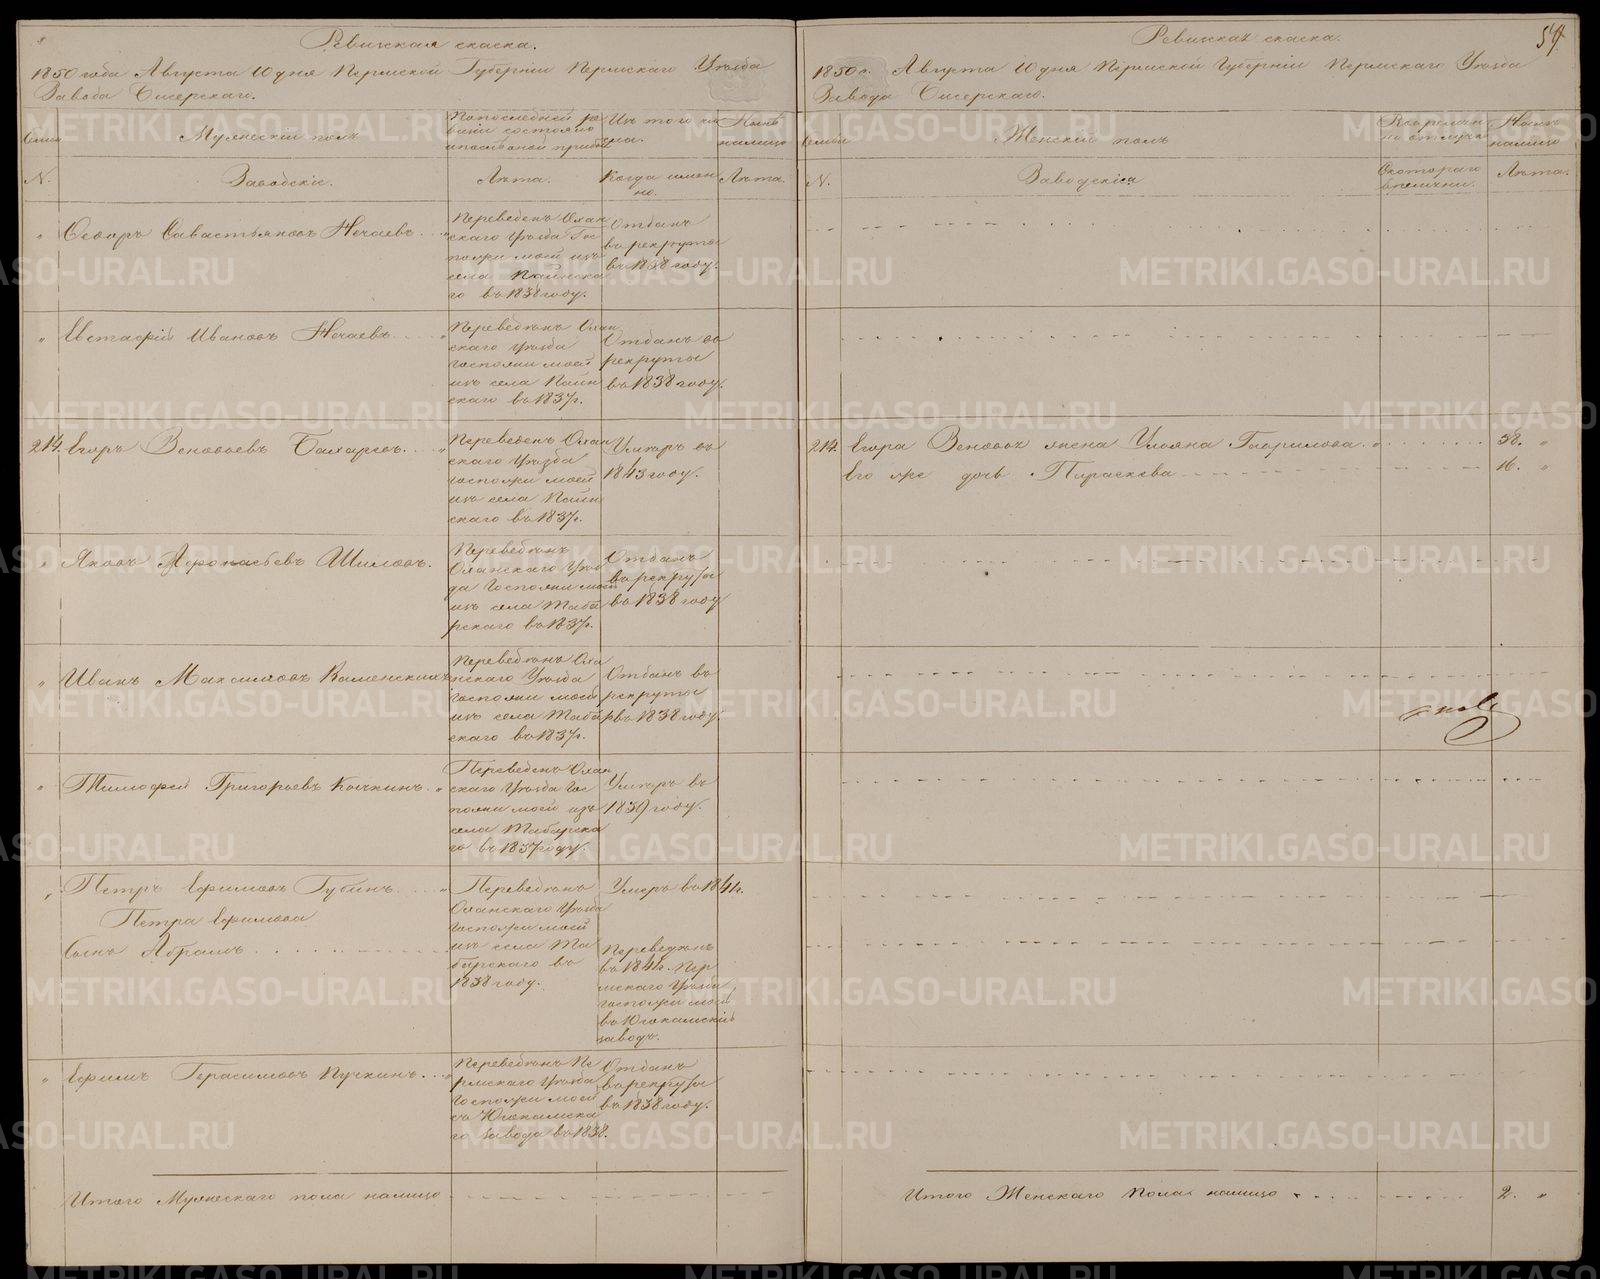 Ревижская скаска.
1850 года Августа 10 дня Пермской Губернiи Пермскаго Уѣзда
Завода Бисерскаго.
Мужескiй полъ
Изъ того числа.
Нынѣ налицо
N.
Заводскiе.
Лѣта.
Когда именно.
Лѣта.
Ѳедоръ Савастьяновъ Нечаевъ
Переведенъ Охан
скаго Уѣзда Гос
пожи моей изъ
села
го въ 1838 году.
Отданъ
въ рекруты
въ 1838 году.
Евстафiй Ивановъ Нечаевъ
Переведенъ Охан
скаго Уѣзда
госпожи моей
изъ села
скаго въ 1837 г.
Отданъ въ
рекруты
въ 1838 году.
214. Егоръ Зеновьевъ Бахаревъ
Переведенъ Охан
скаго Уѣзда
госпожи моей
изъ села
скаго въ 1837 г.
Умеръ въ
1843 году.
Яковъ Шиловъ.
Переведенъ
Оханскаго Уѣз
да Госпожи моей
изъ села Табо
рскаго въ 1837 г.
Отданъ
въ рекруты
въ 1838 году
Иванъ Максимовъ Каменскихъ
Переведенъ Оха
нскаго Уѣзда
госпожи моей
изъ села Табор
скаго въ 1837 г.
Отданъ въ
рекруты
въ 1838 году.
Тимофей Григорьевъ Кочкинъ
Переведенъ Охан
скаго Уѣзда Гос
пожи моей изъ
села Таборска
го въ 1837 году.
Умеръ въ
1839 году.
Петръ Ефимовъ Губинъ
Петра Ефимова
Сынъ Абрамъ
Переведенъ
Оханскаго Уѣзда
госпожи моей
изъ села Та
борскаго въ
1838 году.
Умеръ въ 1841 г.
Переведенъ
въ 1841 г. Пер
мскаго Уѣзда
госпожи моей
въ Югокамскiй
заводъ.
Ефимъ Герасимовъ Пучкинъ
Переведенъ Пе
рмскаго Уѣзда
Госпожи моей
съ Югокамска
го завода въ 1838.
Отданъ
въ рекруты
въ 1838 году.
Итого Мужескаго пола налицо
Ревижская скаска.
57.
1850 г. Августа 10 дня Пермской Губернiи Пермскаго Уѣзда
Завода Бисерскаго.
Женскiй полъ
Нынѣ налицо
N.
Заводскiя
Лѣта.
214. Егора Зеновьева жена Ульяна Гаврилова 58.
Его же дочь Параскева 16.
Итого Женскаго пола налицо 2.
METRIKI.GASO-URAL.RU